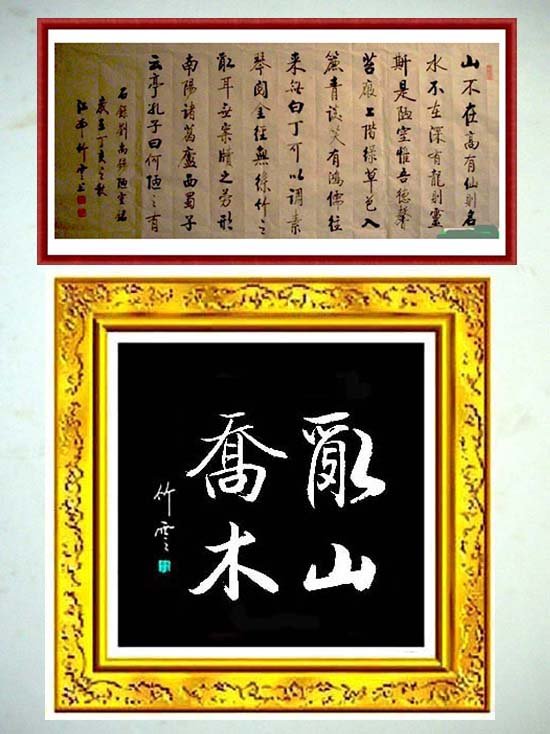 山不在高有仙則名
水不在深有龍則靈
斯是陋室惟吾德馨
苔痕上階綠草色入
簾青談笑有鴻儒往
來無白丁可以調素
琴閱金經無絲竹之
亂耳無案牘之勞形
南陽諸葛廬西蜀子
云亭孔子曰何陋之有
右錄劉禹錫陋室銘
歲在丁亥之秋
竹雲書
亂山
喬木
竹雲